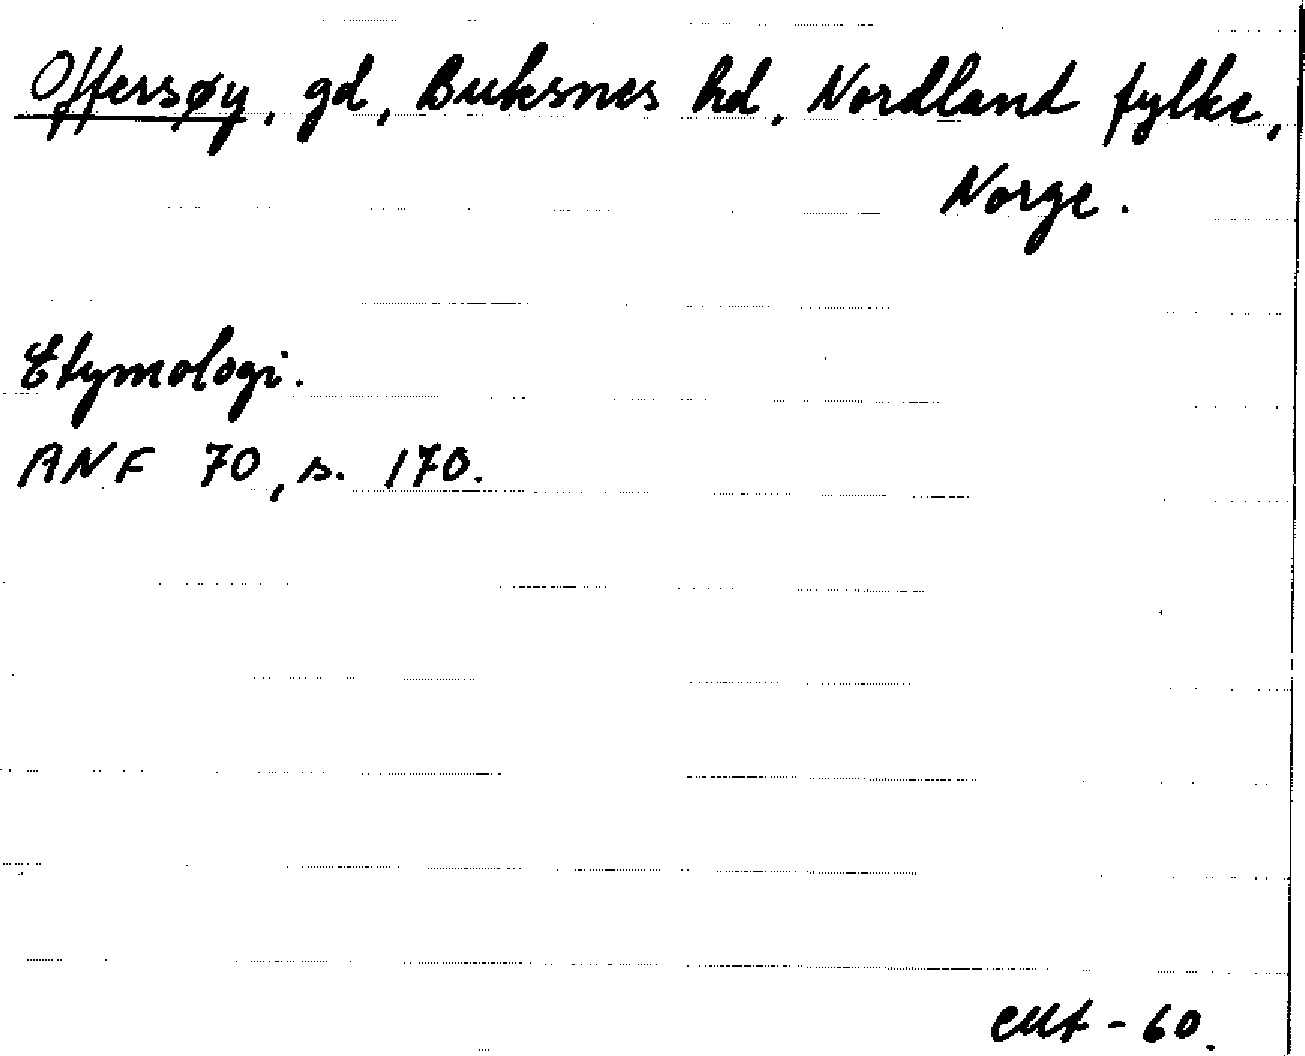 Offersøy, gd, Buksnes hd, Nordland fylke,
Norge.
Etymologi.
ANF 70, s. 170.
- 60.